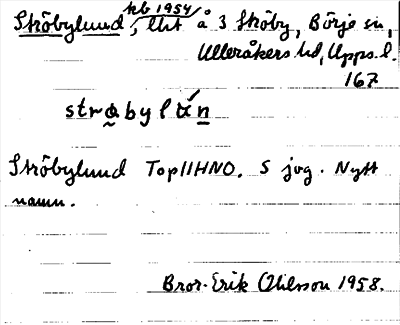 Ströbylund kb 1954, lht å 3 Ströby, Börje sn,
Ulleråkers hd, Upps. l.
167
strøbylún
Ströbylund Top11HNO. S jog. Nytt
namn.
Bror-Erik Ohlsson 1958.